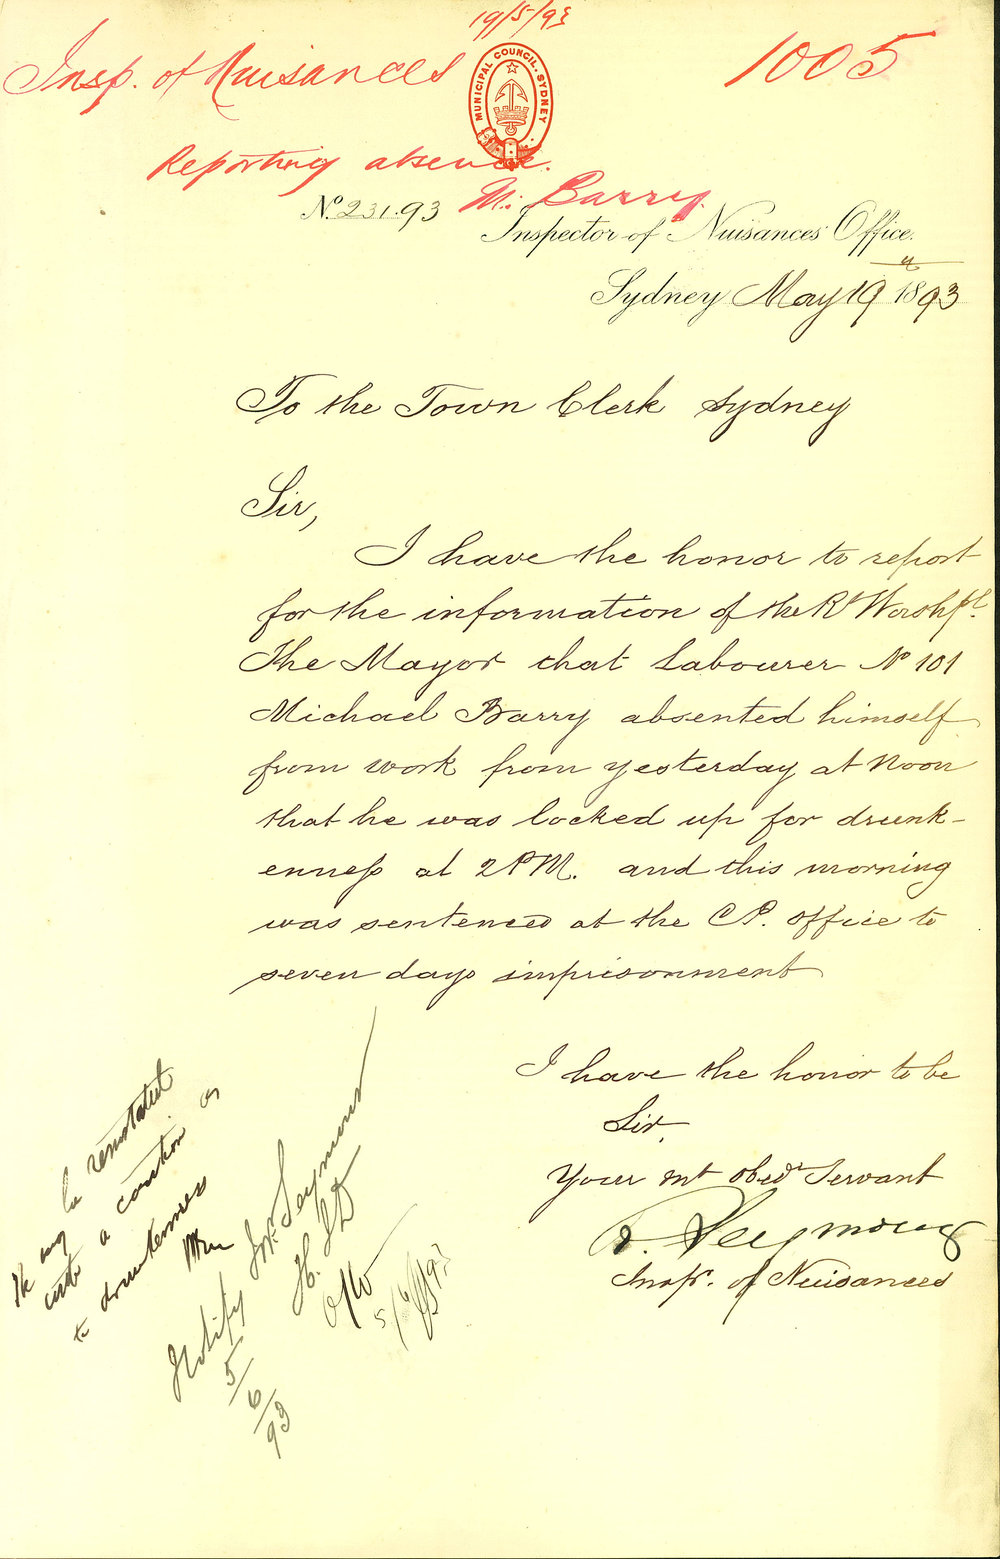 19/5/93
Insp. of Nuisances
1005
MUNICIPAL COUNCIL. SYDNEY
Reporting absence.
M. Barry.
No. 231.93
Inspector of Nuisances Office.
Sydney May 19th 1893
To the Town Clerk Sydney
Sir,
I have the honor to report
for the information of the Rt Worshpl.
The Mayor that Labourer No 101
Michael Barry absented himself
from work from yesterday at Noon
that he was locked up for drunk-
enness at 2 PM. and this morning
was sentenced at the C.P. office to
seven days imprisonment
I have the honor to be
Sir,
Your mt obedt Servant
Seymour
Insp. of Nuisances
He may be reinstated
with a caution as
to drunkenness
Notify Mr. Seymour
5/6/93
5/6/93